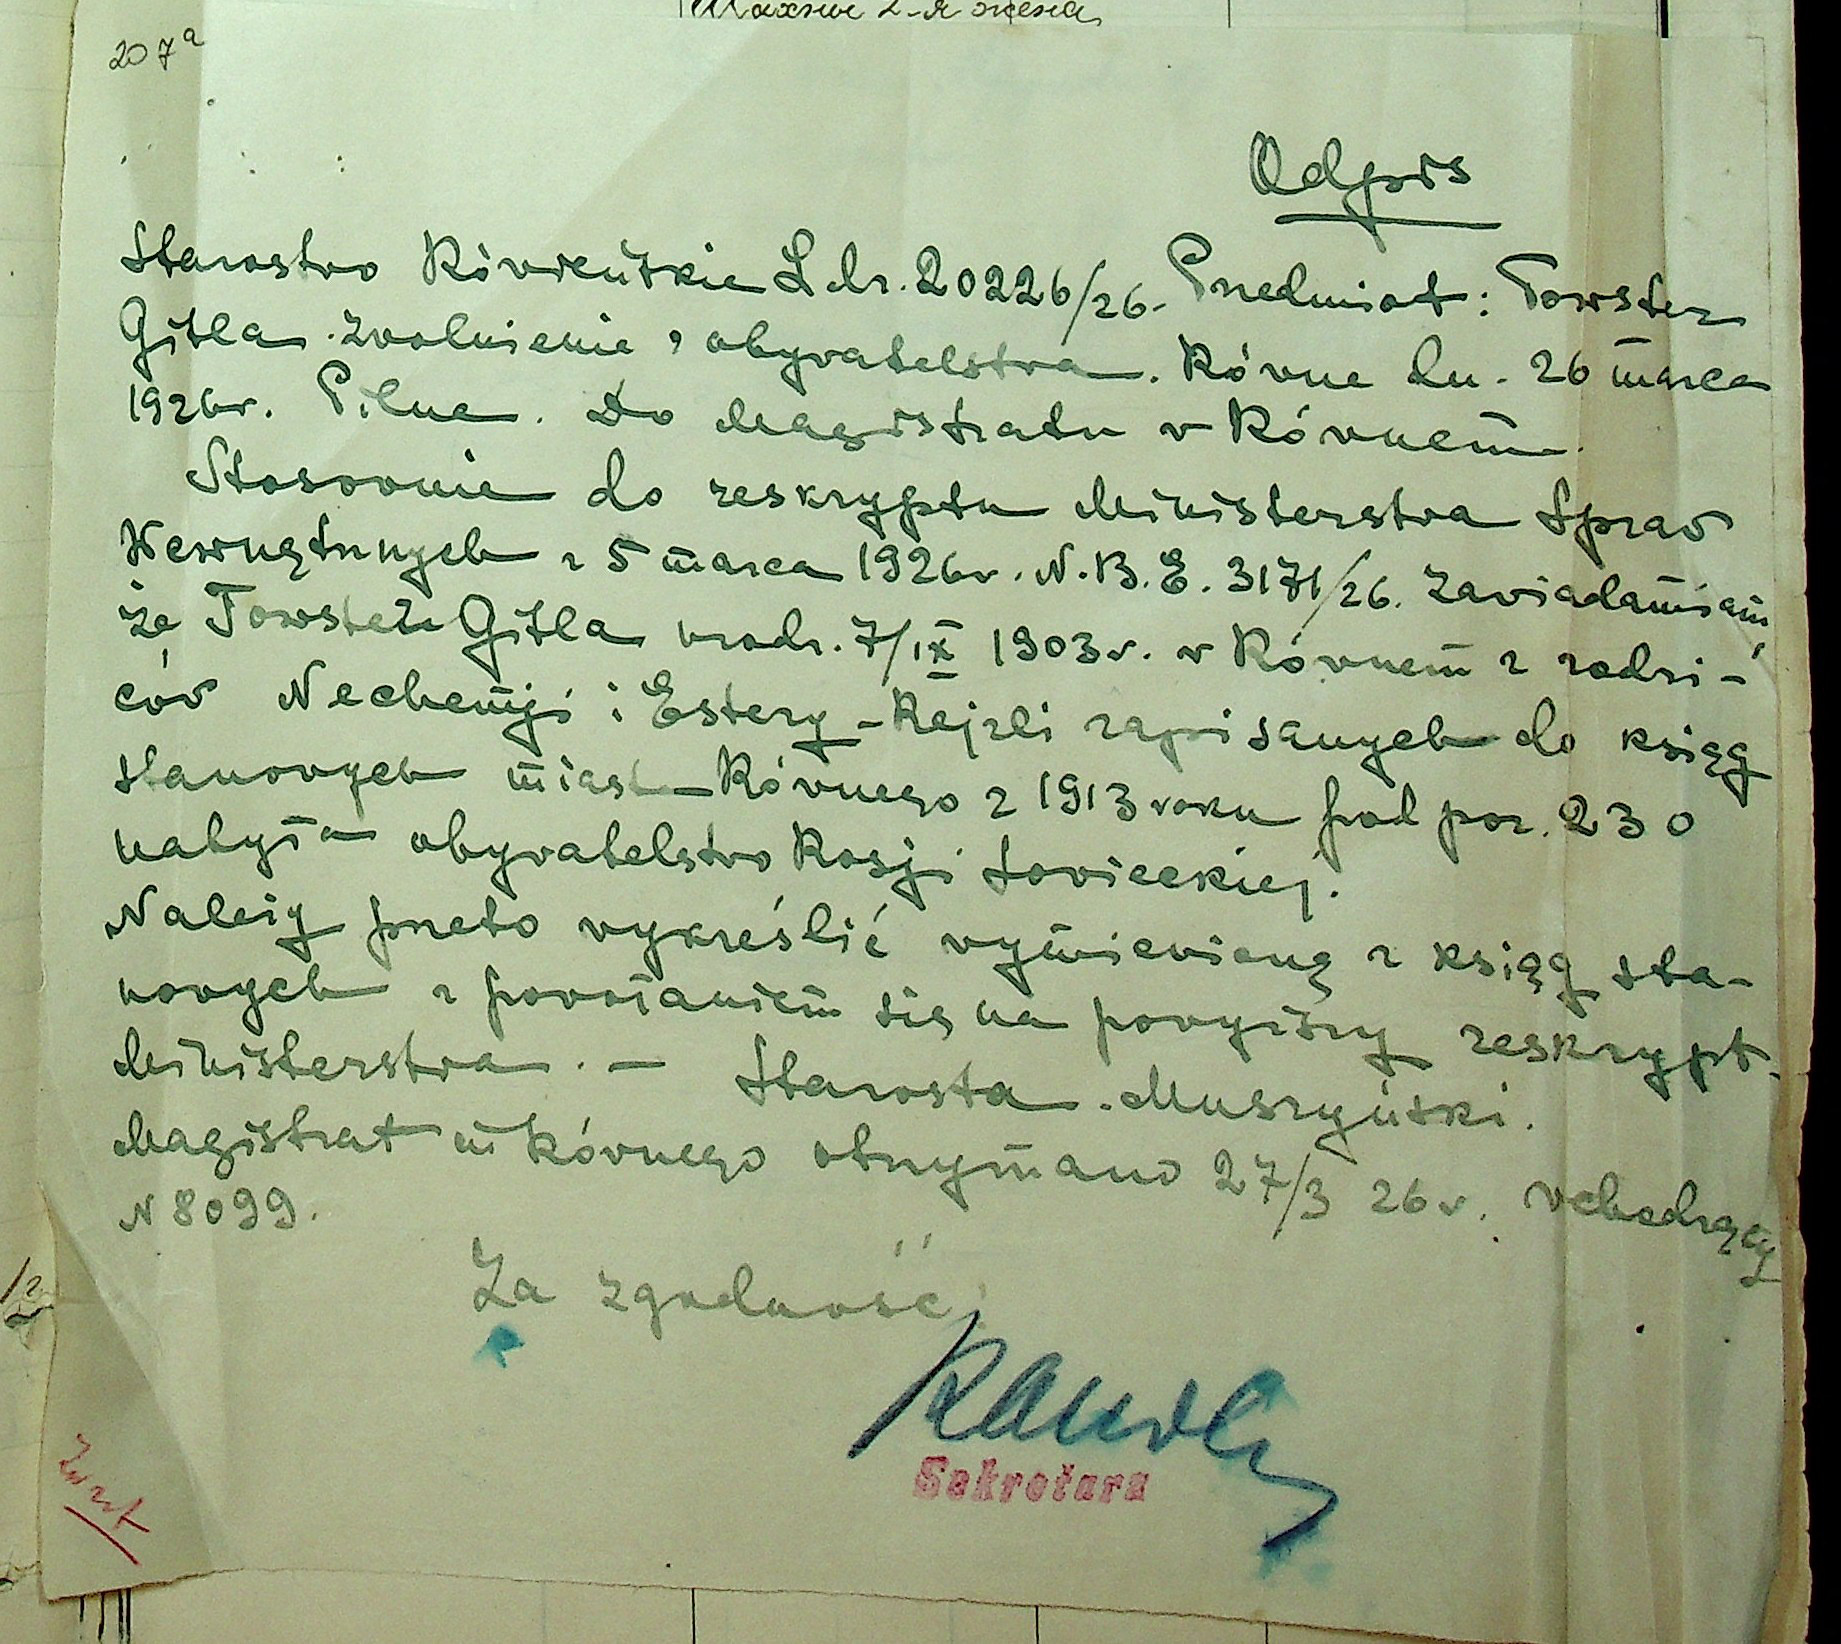 207a
Odpis
Starostwo Rówieńskie L dz. 20226/26. Przedmiot: Towster
Gitla zwolnienie z obywatelstwa. Równe dn. 26 marca
1926 r. Pilne. Do Magistratu w Równem.
Stosownie do reskryptu Ministerstwa Spraw
Wewnętrznych z 5 marca 1926 r. N. B. E. 3171/26. zawiadamiam,
że Towster Gitla urodz. 7/IX 1903 r. w Równem z rodzi-
ców Nechemji i Estery-Rejzli zapisanych do ksiąg
stanowych miasta Równego z 1913 roku pod poz. 230
nabyła obywatelstwo Rosji Sowieckiej.
Należy przeto wykreślić wymienioną z ksiąg sta-
nowych z powołaniem się na powyższy reskrypt
Ministerstwa. — Starosta Muszyński.
Magistrat m Równego otrzymano 27/3 26 r. wchodzący
N 8099.
Za zgodność:
Sekretarz